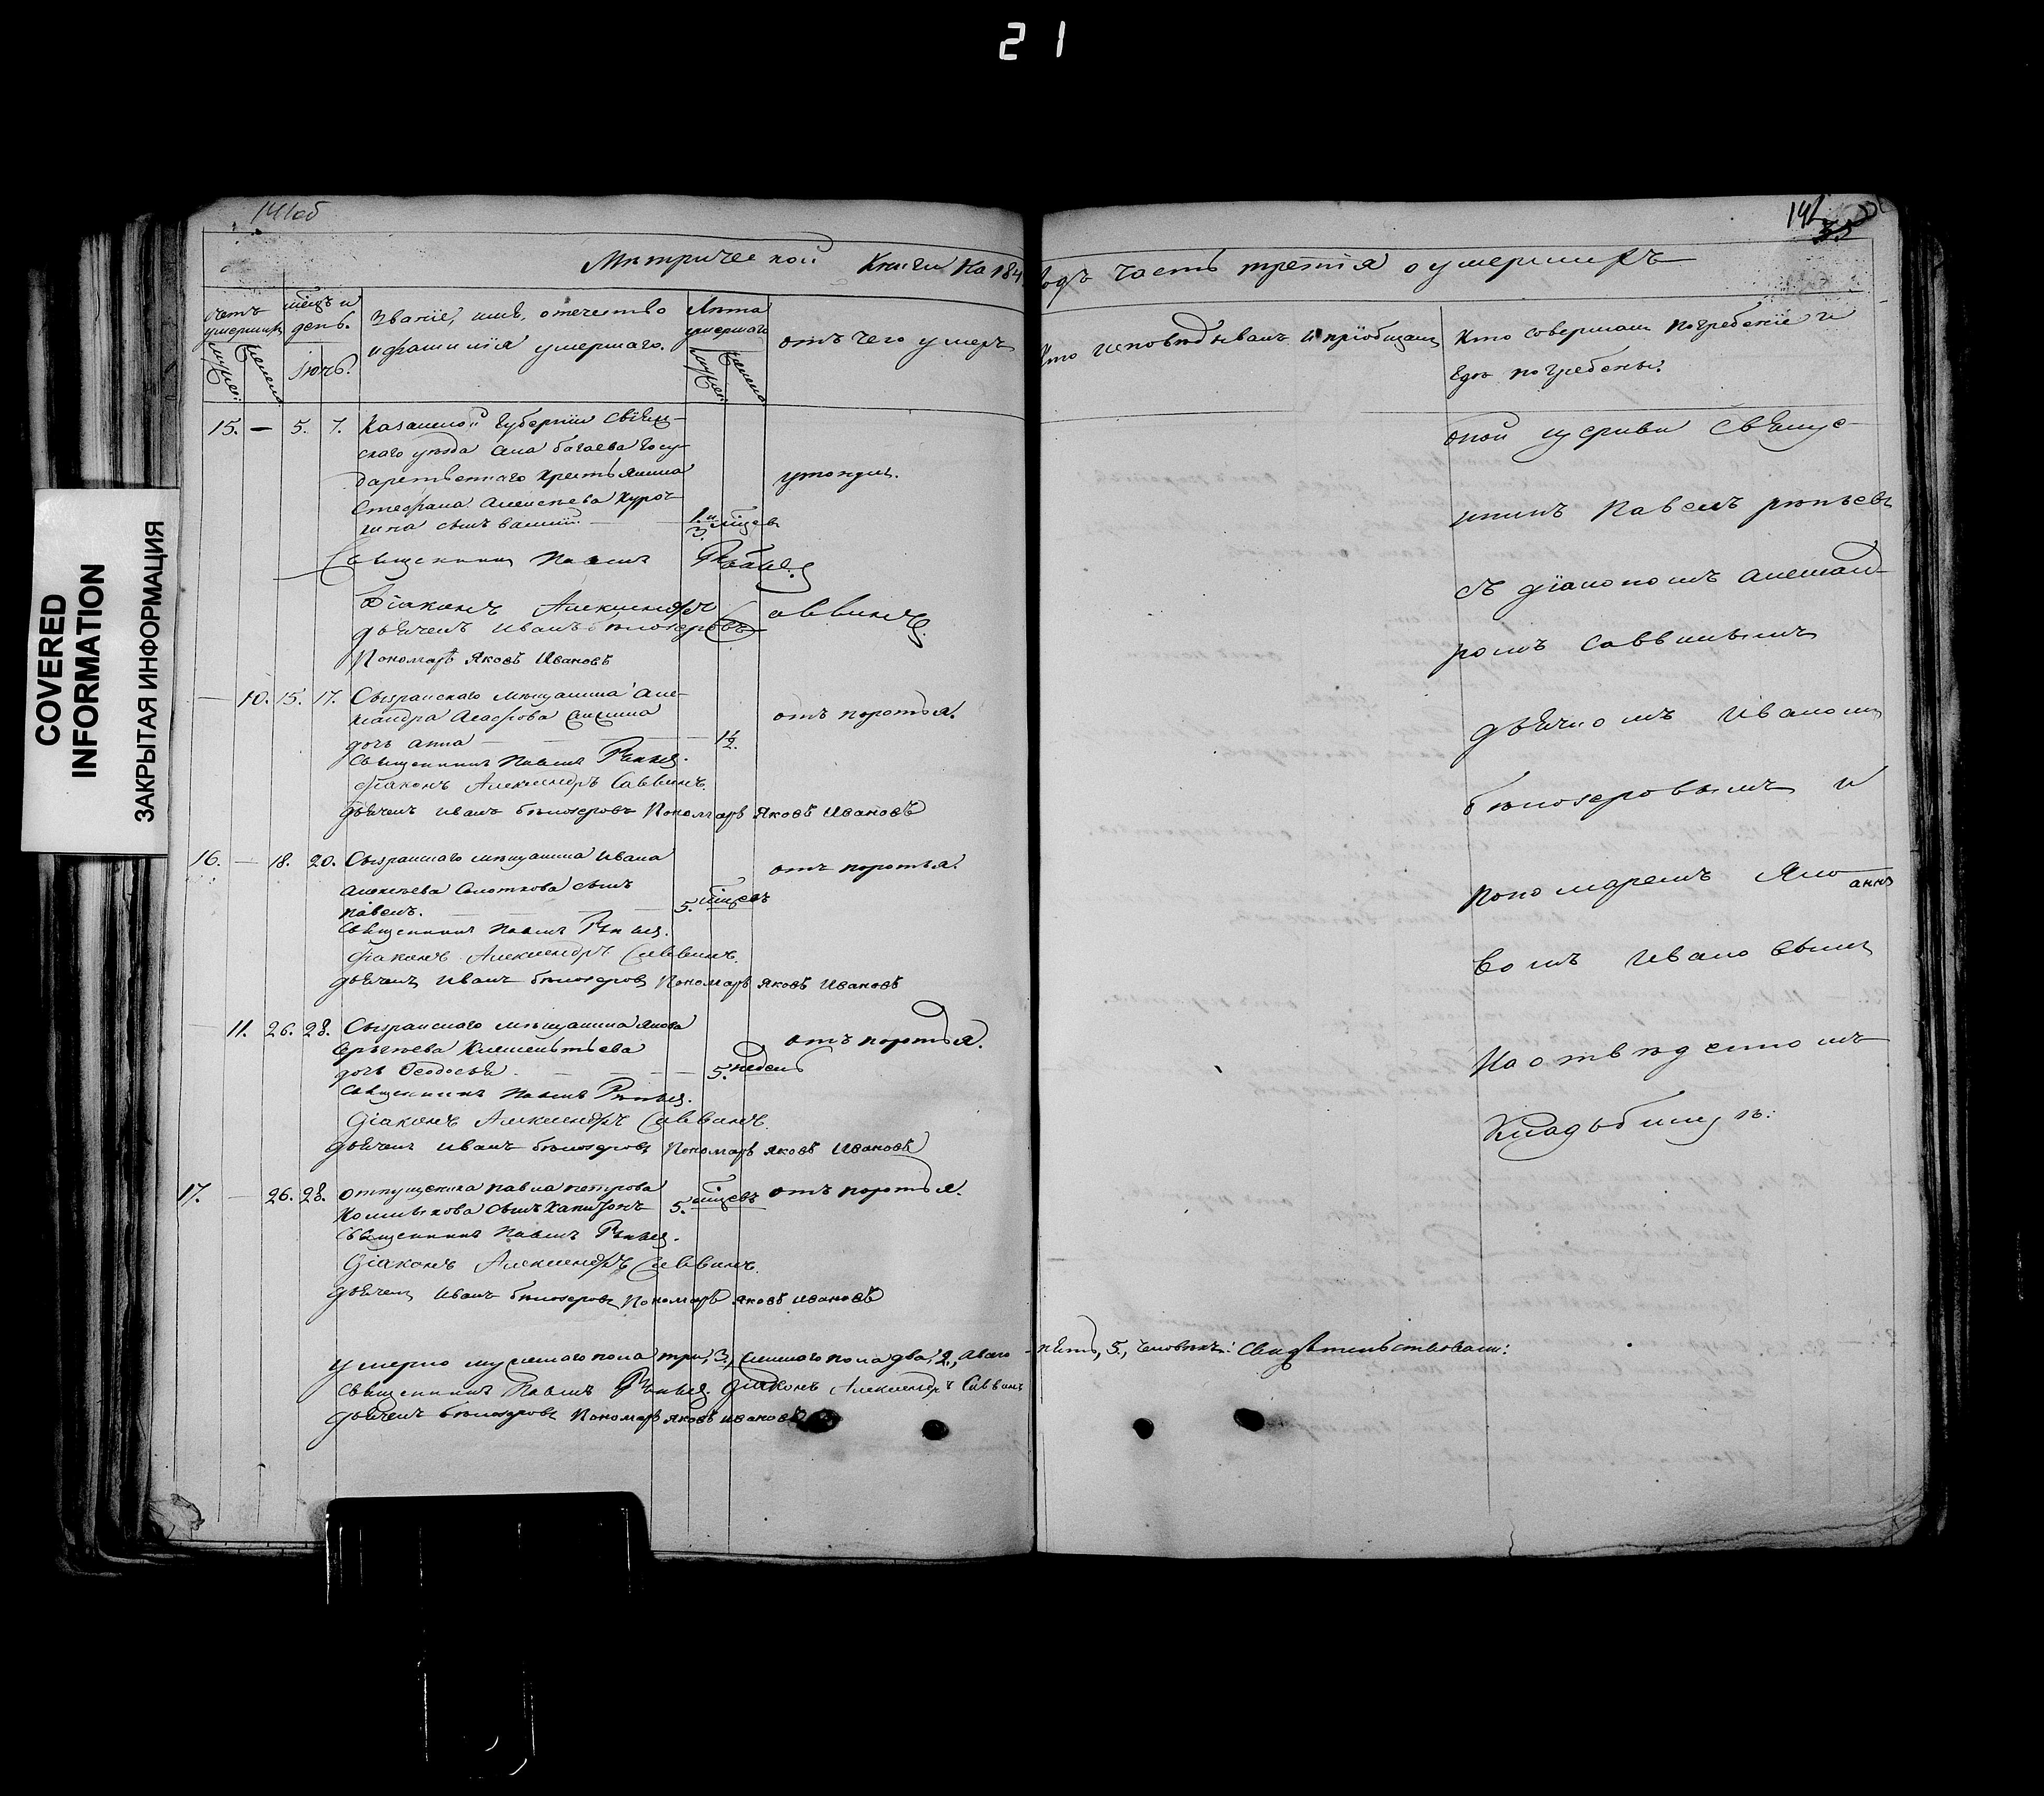 21
141об
142
35
Метрической Книги на 184 годъ часть третія о умершихъ
счетъ умершихъ
мужес:
женска
мѣсяцъ и день.
Іюнь.
Званіе, имя, отечество
и фамилія умершаго.
Лѣта умершаго
мужес:
женска
отъ чего умеръ
Кто исповѣдывалъ и пріобщалъ
Кто совершалъ погребеніе и
гдѣ погребены.
15. — 5. 7. Казанской Губерніи Свіяж-
скаго уѣзда села багаева Госу-
дарственнаго крестьянина
Стефана Алексѣева Куроч-
кина сынъ василій. — 1. и 3. мѣсяцев
утонулъ.
Священникъ Павелъ
Діаконъ Александръ Саввинъ.
дьячекъ Иванъ бѣлозеровъ
Пономарь Яковъ Ивановъ
— 10. 15. 17. Сызранскаго мѣщанина Але-
ксандра Агафова
дочь анна — 1½.
отъ поротья.
Священникъ Павелъ
Діаконъ Александръ Саввинъ.
дьячекъ иванъ бѣлозеровъ Пономарь Яковъ Ивановъ
16. — 18. 20. Сызранскаго мѣщанина Ивана
Алексѣева Солоткова сынъ
павелъ. — 5. мѣсяцевъ
отъ поротья.
Священникъ Павелъ
Діаконъ Александръ Саввинъ.
дьячекъ иванъ бѣлозеровъ Пономарь Яковъ Ивановъ
— 11. 26. 28. Сызранскаго мѣщанина Якова
Сергѣева Клементьева
дочь Ѳеодосья. — 5. недель
отъ поротья.
Священникъ Павелъ
Діаконъ Александръ Саввинъ.
дьячекъ иванъ бѣлозеровъ Пономарь Яковъ Ивановъ
17. — 26. 28. отпущеника павла петрова
сынъ Капитонъ 5. мѣсяцевъ
отъ поротья.
Священникъ Павелъ
Діаконъ Александръ Саввинъ.
дьячекъ Иванъ бѣлозеровъ Пономарь Яковъ Ивановъ
умерло мужескаго пола три, 3., женскаго пола два, 2., а всего пять, 5., человѣкъ: Свидѣтельствовали:
Священникъ Павелъ Діаконъ Александръ Саввинъ
дьячекъ бѣлозеровъ Пономарь Яковъ Ивановъ
оной церкви Священ-
никъ Павелъ
съ діакономъ Александ-
ромъ Саввинымъ
дьячкомъ Иваномъ
бѣлозеровымъ и
пономаремъ Яко-
вомъ Ивановымъ
На отведенномъ
Кладьбищѣ:
COVERED
INFORMATION
ЗАКРЫТАЯ ИНФОРМАЦИЯ